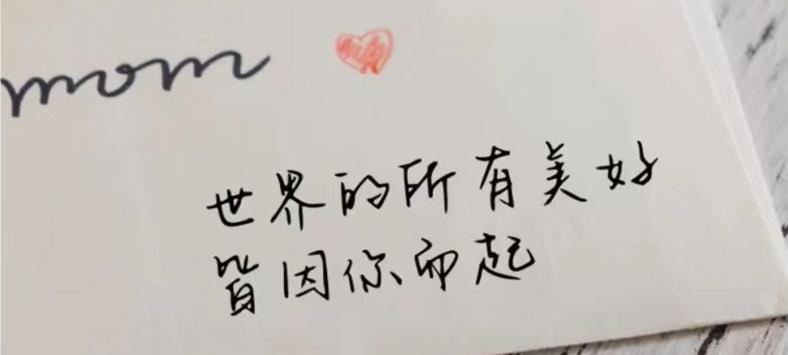 mom
世界的所有美好
皆因你而起